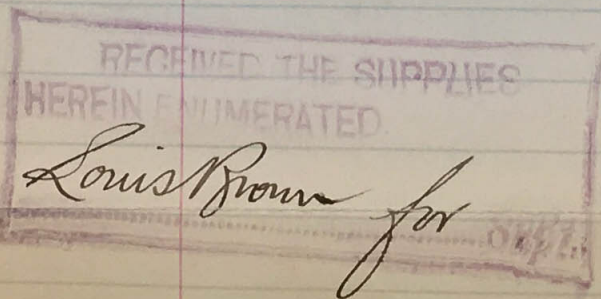 RECEIVED THE SUPPLIES
HEREIN ENUMERATED.
Louis Brown for Supt.